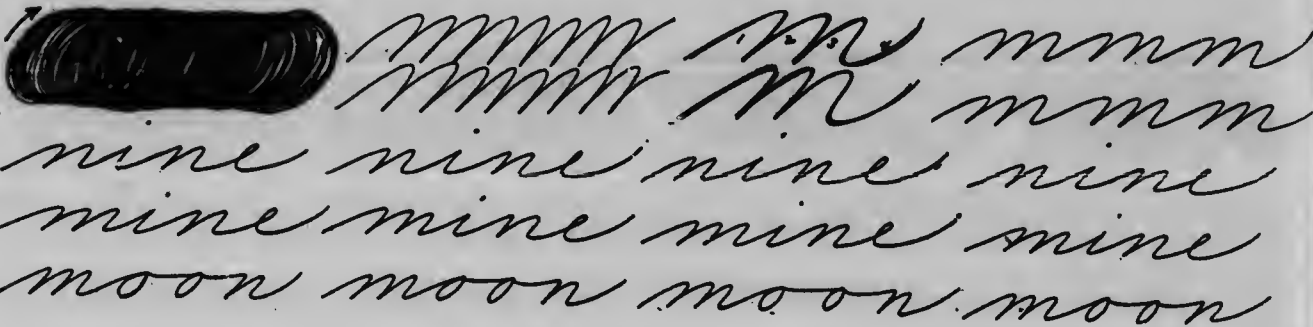 m 1 2 3 4 mmm
m mmm
nine nine nine nine
mine mine mine mine
moon moon moon moon